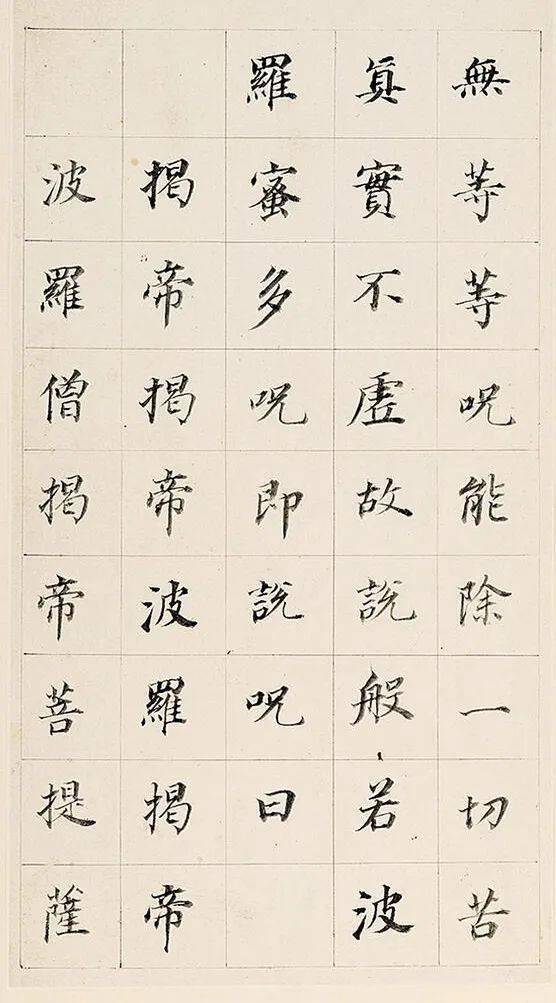 無等等呪能除一切苦
真實不虛故說般若波
羅蜜多呪即說呪曰
揭帝揭帝波羅揭帝
波羅僧揭帝菩提薩